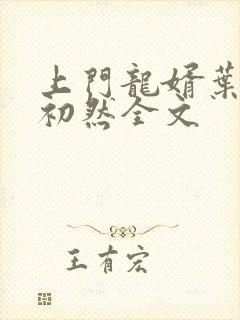 上門龍婿葉
初然全文
王有宏